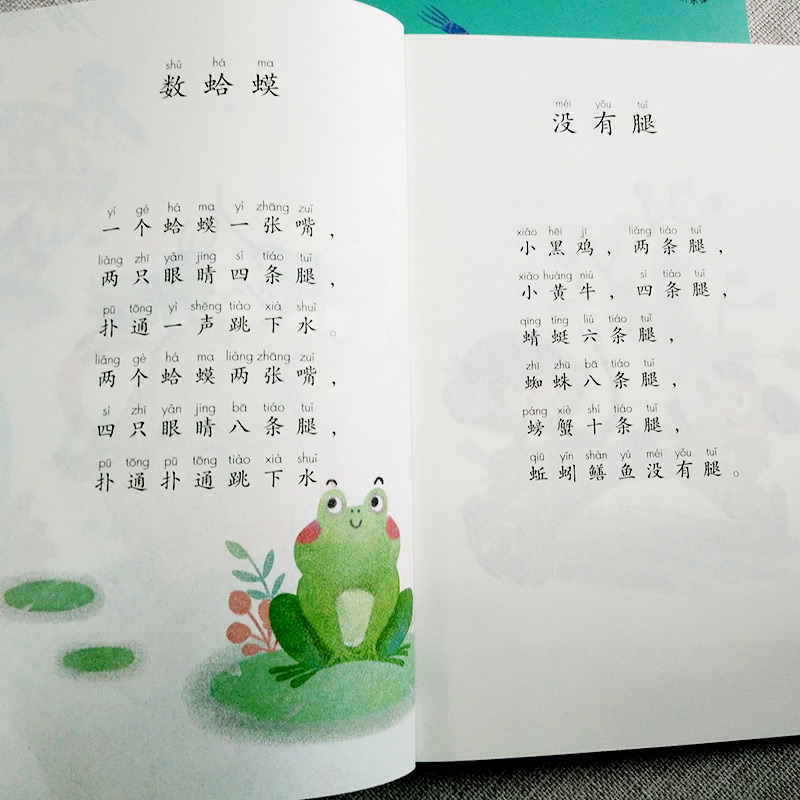 shǔ há ma
数蛤蟆
yí gè há ma yì zhāng zuǐ
一个蛤蟆一张嘴，
liǎng zhī yǎn jing sì tiáo tuǐ
两只眼睛四条腿，
pū tōng yì shēng tiào xià shuǐ
扑通一声跳下水。
liǎng gè há ma liǎng zhāng zuǐ
两个蛤蟆两张嘴，
sì zhī yǎn jing bā tiáo tuǐ
四只眼睛八条腿，
pū tōng pū tōng tiào xià shuǐ
扑通扑通跳下水
méi yǒu tuǐ
没有腿
xiǎo hēi jī liǎng tiáo tuǐ
小黑鸡，两条腿，
xiǎo huáng niú sì tiáo tuǐ
小黄牛，四条腿，
qīng tíng liù tiáo tuǐ
蜻蜓六条腿，
zhī zhū bā tiáo tuǐ
蜘蛛八条腿，
páng xiè shí tiáo tuǐ
螃蟹十条腿，
qiū yǐn shàn yú méi yǒu tuǐ
蚯蚓鳝鱼没有腿。